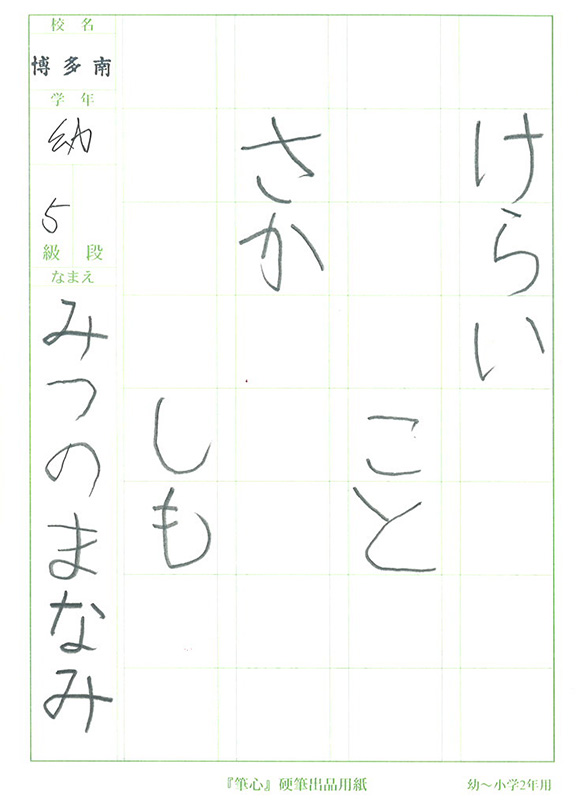 けらい
こと
さか
しも
校名
博多南
学年
幼
5
級 段
なまえ
みつのまなみ
『筆心』硬筆出品用紙
幼〜小学2年用